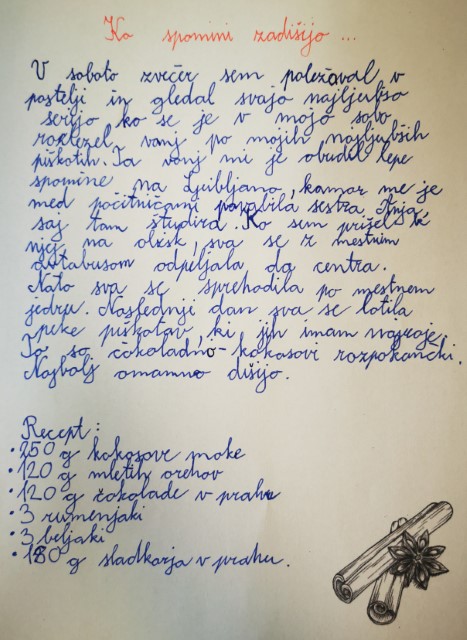 Ko spomini zadišijo ...
V soboto zvečer sem poležaval v
postelji in gledal svojo najljubšo
serijo ko se je v mojo sobo
raztezel vonj po mojih najljubših
piškotih. Ta vonj mi je obudil lepe
spomine na Ljubljano, kamor me je
med počitnicami povabila sestra Anja,
saj tam študira. Ko sem prišel k
njej na obisk, sva se z mestnim
avtobusom odpeljala do centra.
Nato sva se sprehodila po mestnem
jedru. Naslednji dan sva se lotila
peke piškotov, ki jih imam najraje.
To so čokoladno-kokosovi razpokančki.
Najbolj omamno dišijo.
Recept:
• 250 g kokosove moke
• 120 g mletih orehov
• 120 g čokolade v prahu
• 3 rumenjaki
• 3 beljaki
• 180 g sladkorja v prahu.